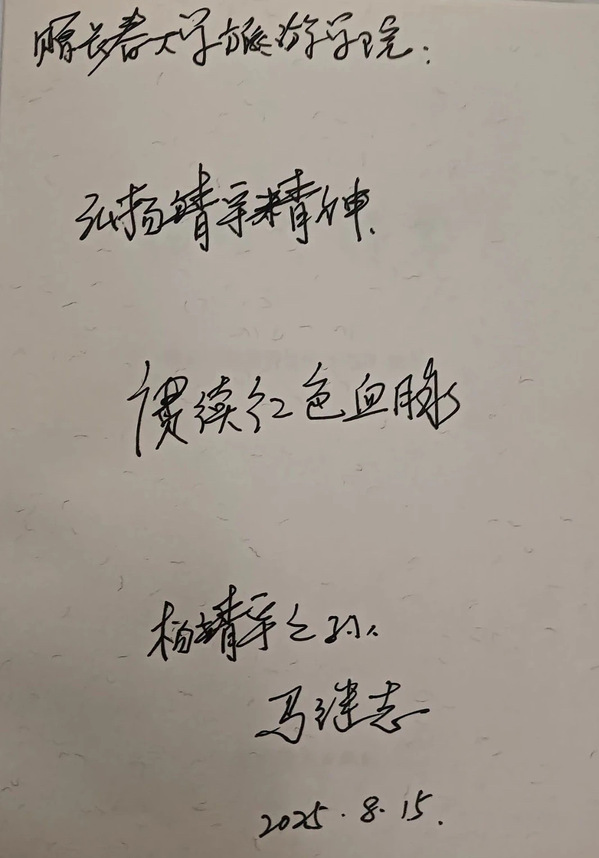 赠长春大学旅游学院:
弘扬靖宇精神、
赓续红色血脉
杨靖宇之孙、
马继志
2025.8.15.